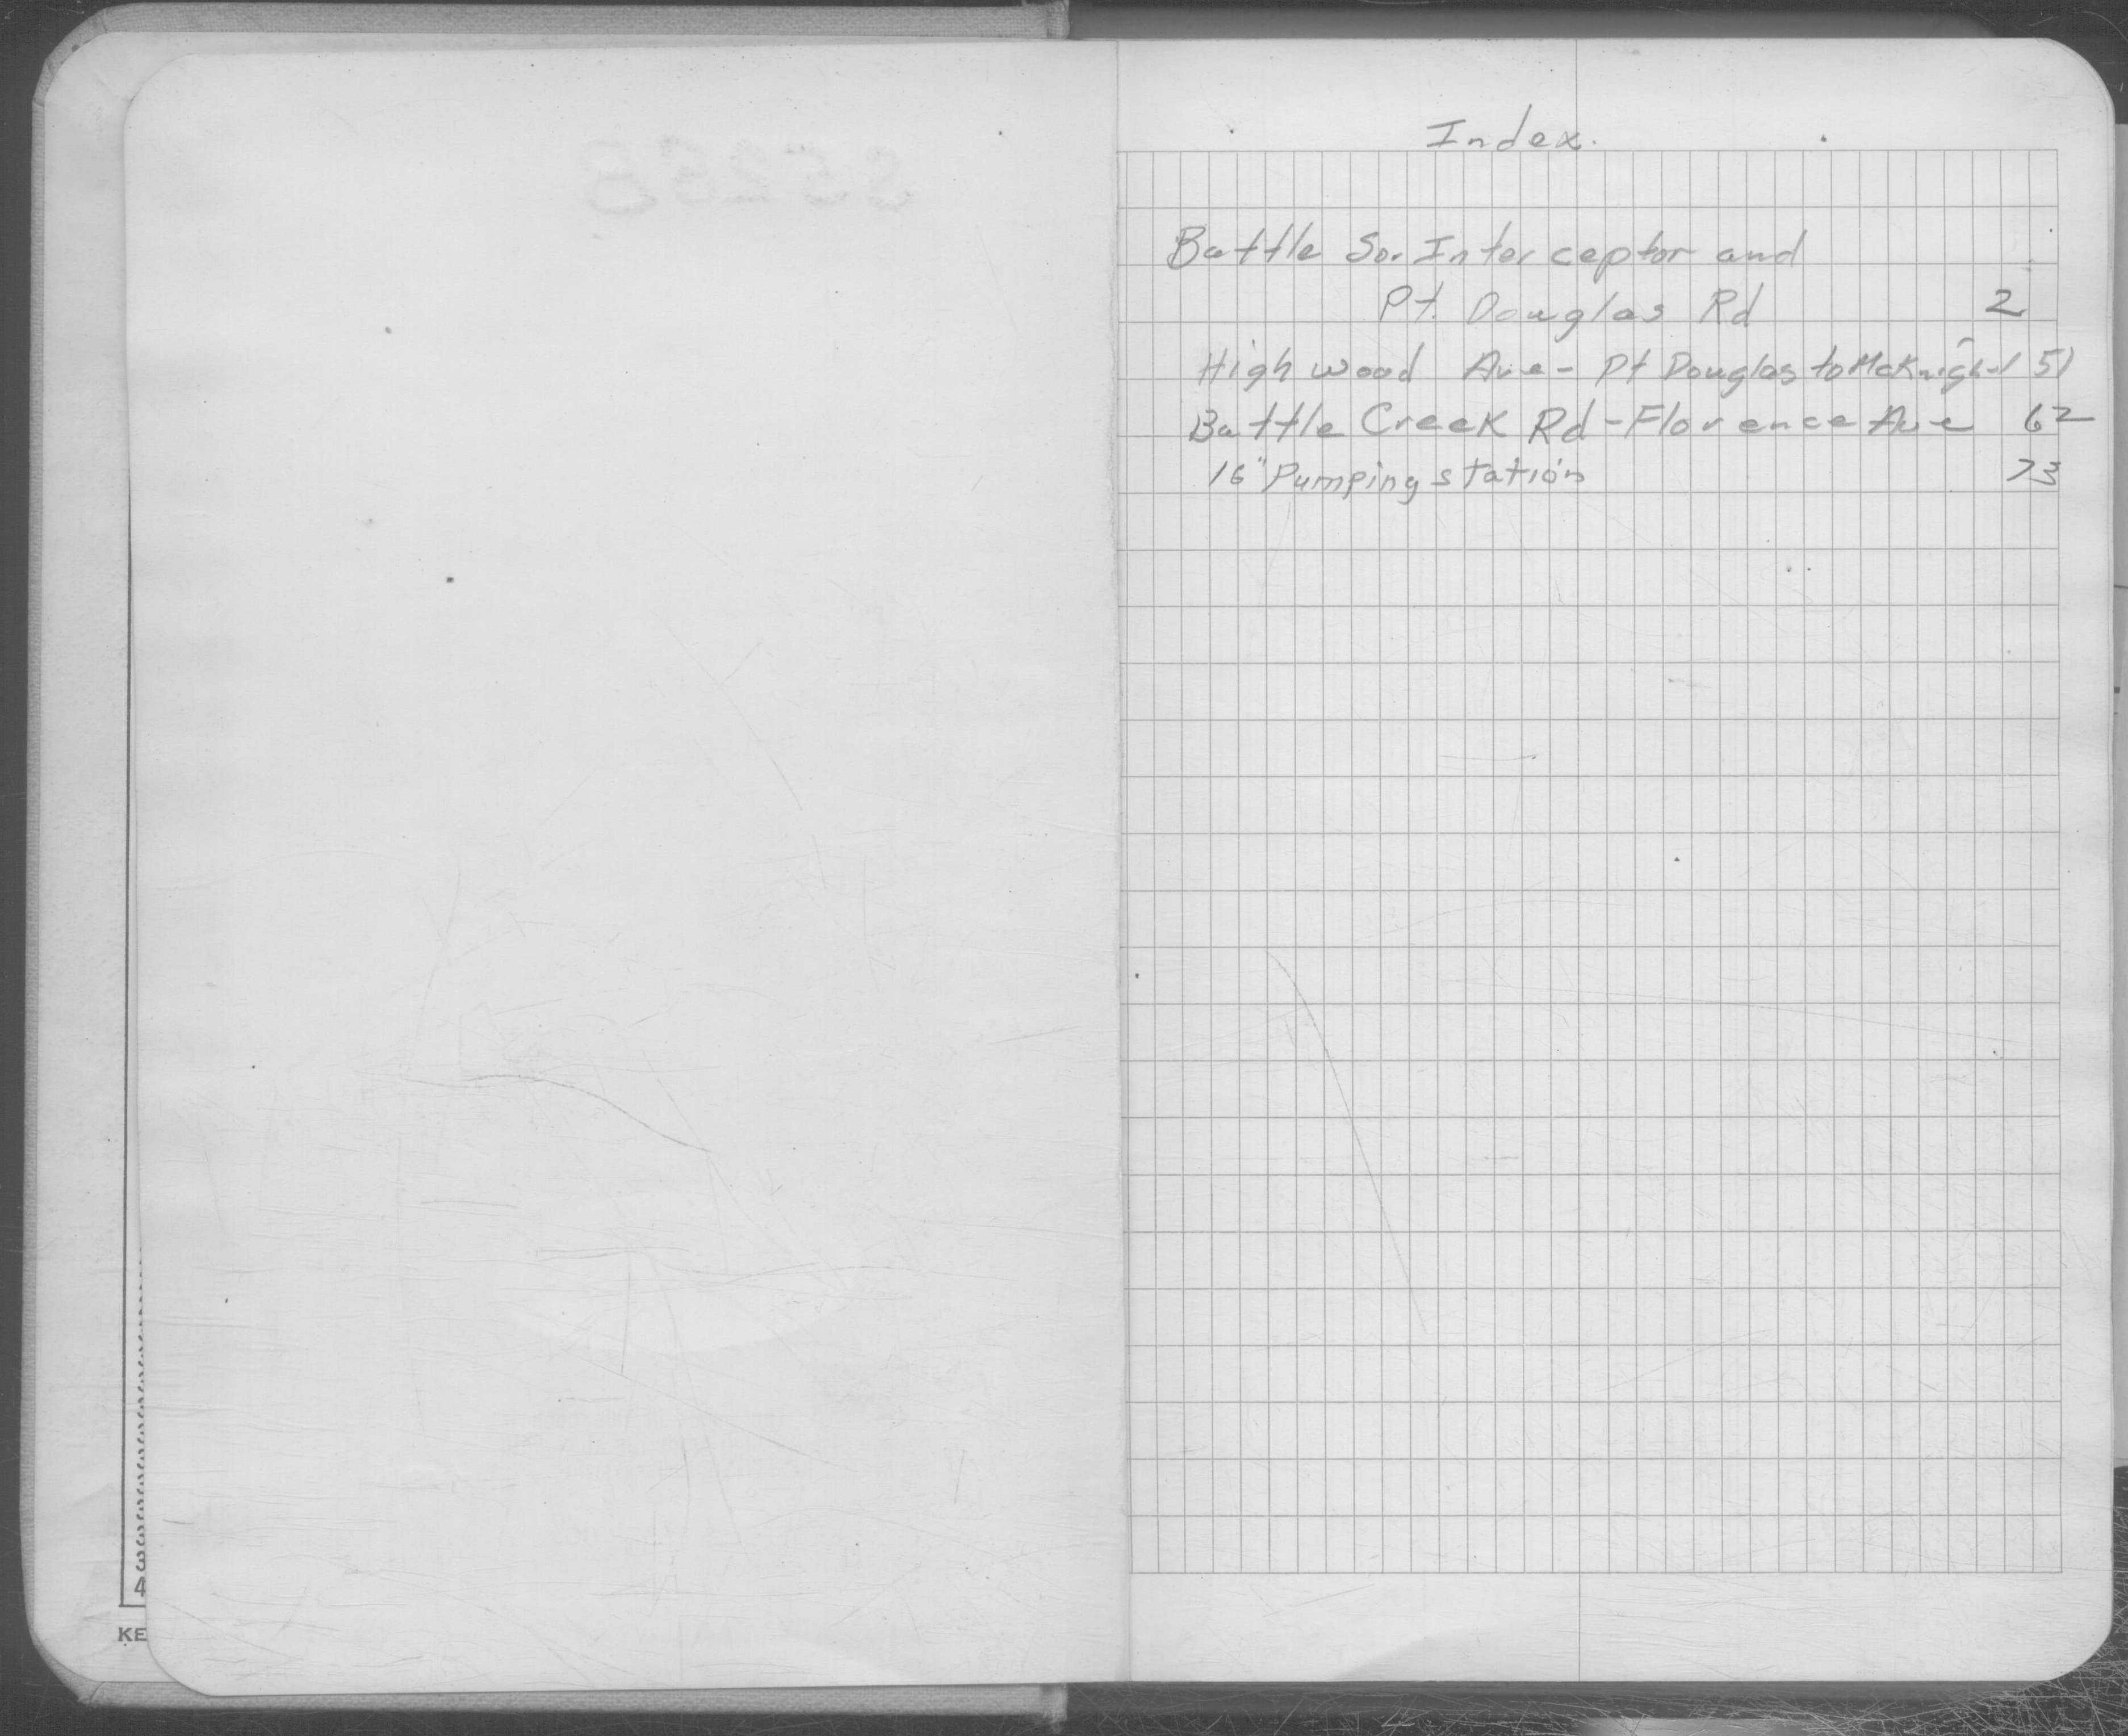 Index.
Battle So. Interceptor and
Pt. Douglas Rd 2
Highwood Ave - Pt Douglas to McKnight 51
Battle Creek Rd - Florence Ave 62
16" Pumping station 73
KE